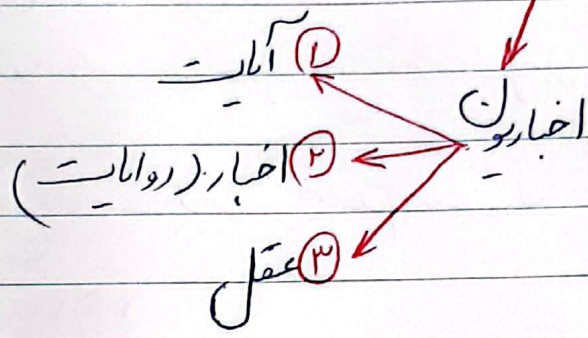 اخباریون
۱ آیات
۲ اخبار (روایات)
۳ عقل